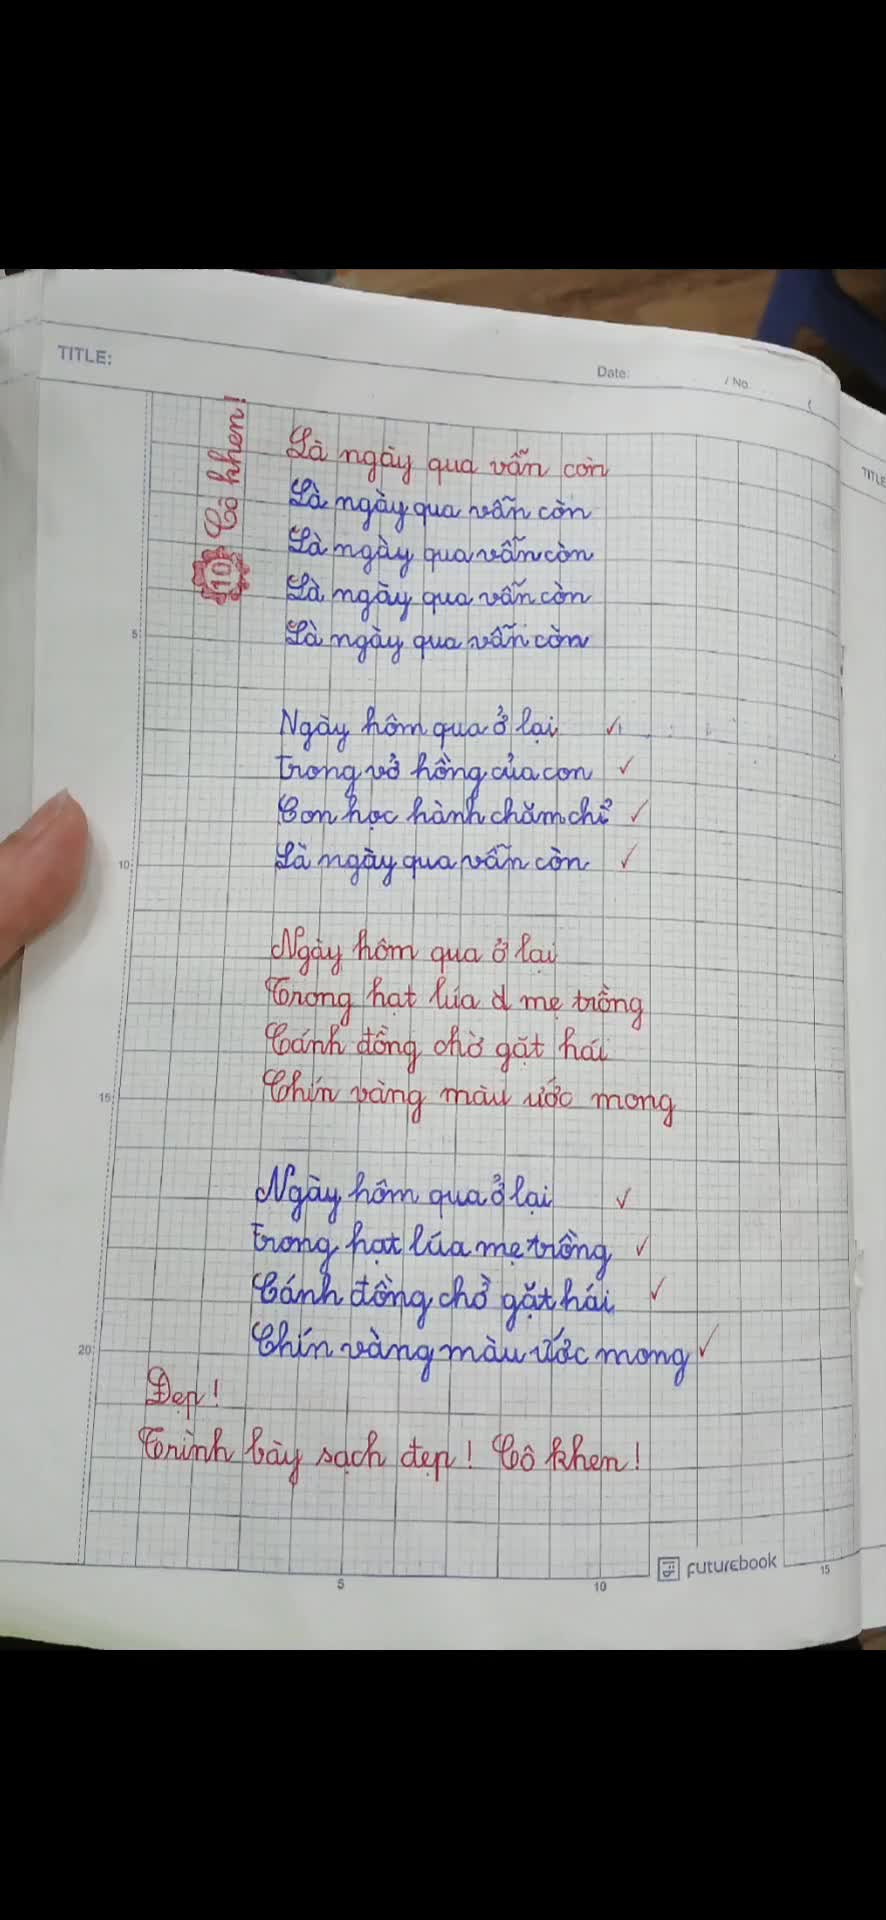 TITLE:
Date:
/ No.
TITLE
10 Cô khen!
Là ngày qua vẫn còn
Là ngày qua vẫn còn
Là ngày qua vẫn còn
Là ngày qua vẫn còn
Là ngày qua vẫn còn
5
Ngày hôm qua ở lại
trong vở hồng của con
Con học hành chăm chỉ
Là ngày qua vẫn còn
10
Ngày hôm qua ở lại
Trong hạt lúa mẹ trồng
Cánh đồng chờ gặt hái
Chín vàng màu ước mong
15
Ngày hôm qua ở lại
trong hạt lúa mẹ trồng
Cánh đồng chờ gặt hái
Chín vàng màu ước mong
20
Đẹp!
Trình bày sạch đẹp! Cô khen!
FUTUREBOOK
5 10 15